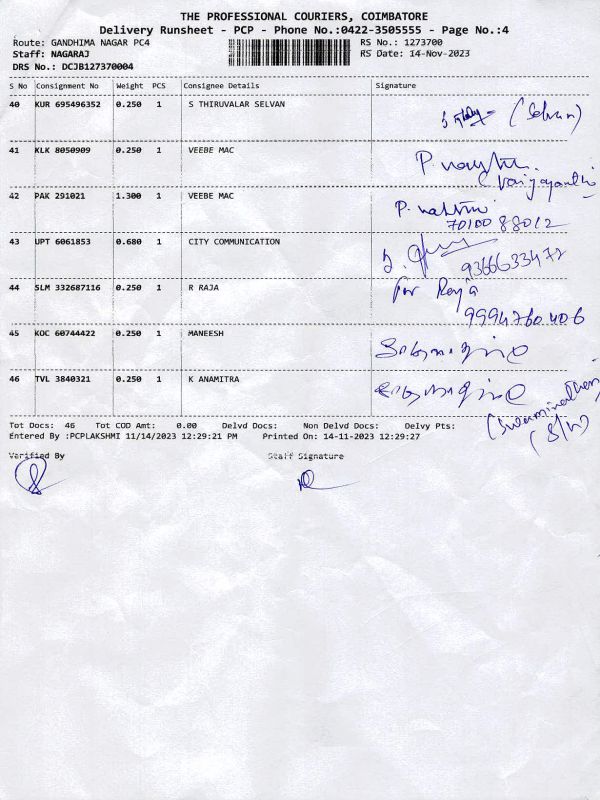 THE PROFESSIONAL COURIERS, COIMBATORE
Delivery Runsheet - PCP - Phone No.:0422-3505555 - Page No.:4
Route: GANDHIMA NAGAR PC4 RS No.: 1273700
Staff: NAGARAJ RS Date: 14-Nov-2023
DRS No.: DCJB127370004
S No Consignment No Weight PCS Consignee Details Signature
40 KUR 695496352 0.250 1 S THIRUVALAR SELVAN
(Selvan)
41 KLK 8050909 0.250 1 VEEBE MAC
(Vaijayanthi
42 PAK 291021 1.300 1 VEEBE MAC
7010088012
43 UPT 6061853 0.680 1 CITY COMMUNICATION
9366633472
44 SLM 332687116 0.250 1 R RAJA for Raja
9994760406
45 KOC 60744422 0.250 1 MANEESH
46 TVL 3840321 0.250 1 K ANAMITRA
(Swaminathan)
(S/n)
Tot Docs: 46 Tot COD Amt: 0.00 Delvd Docs: Non Delvd Docs: Delvy Pts:
Entered By :PCPLAKSHMI 11/14/2023 12:29:21 PM Printed On: 14-11-2023 12:29:27
Verified By Staff Signature